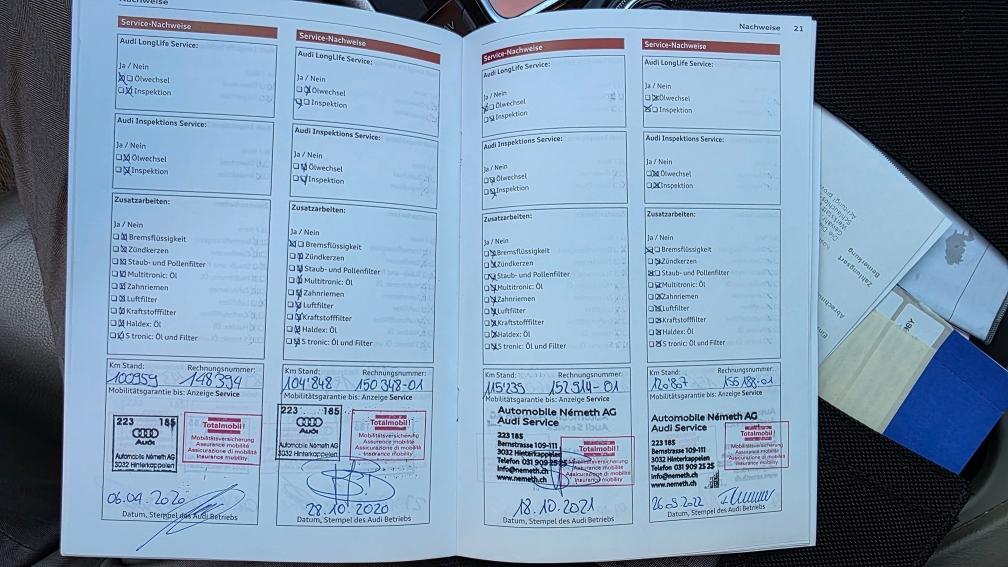 Nachweise
Nachweise 21
Service-Nachweise
Audi LongLife Service:
Ja / Nein
Ölwechsel
Inspektion
Audi Inspektions Service:
Ja / Nein
Ölwechsel
Inspektion
Zusatzarbeiten:
Ja / Nein
Bremsflüssigkeit
Zündkerzen
Staub- und Pollenfilter
Multitronic: Öl
Zahnriemen
Luftfilter
Kraftstofffilter
Haldex: Öl
S tronic: Öl und Filter
Km Stand: Rechnungsnummer:
100959 148394
Mobilitätsgarantie bis: Anzeige Service
223 185
Audi
Automobile Németh AG
3032 Hinterkappelen
Totalmobil!
Mobilitätsversicherung
Assurance mobilité
Assicurazione di mobilità
Insurance mobility
06.04.2020
Datum, Stempel des Audi Betriebs
Service-Nachweise
Audi LongLife Service:
Ja / Nein
Ölwechsel
Inspektion
Audi Inspektions Service:
Ja / Nein
Ölwechsel
Inspektion
Zusatzarbeiten:
Ja / Nein
Bremsflüssigkeit
Zündkerzen
Staub- und Pollenfilter
Multitronic: Öl
Zahnriemen
Luftfilter
Kraftstofffilter
Haldex: Öl
S tronic: Öl und Filter
Km Stand: Rechnungsnummer:
104'848 150348-01
Mobilitätsgarantie bis: Anzeige Service
223 185
Audi
Automobile Németh AG
3032 Hinterkappelen
Totalmobil!
Mobilitätsversicherung
Assurance mobilité
Assicurazione di mobilità
Insurance mobility
28.10.2020
Datum, Stempel des Audi Betriebs
Service-Nachweise
Audi LongLife Service:
Ja / Nein
Ölwechsel
Inspektion
Audi Inspektions Service:
Ja / Nein
Ölwechsel
Inspektion
Zusatzarbeiten:
Ja / Nein
Bremsflüssigkeit
Zündkerzen
Staub- und Pollenfilter
Multitronic: Öl
Zahnriemen
Luftfilter
Kraftstofffilter
Haldex: Öl
S tronic: Öl und Filter
Km Stand: Rechnungsnummer:
115'235 152914-01
Mobilitätsgarantie bis: Anzeige Service
Automobile Németh AG
Audi Service
223 185
Bernstrasse 109-111
3032 Hinterkappelen
Telefon 031 909 25 25
info@nemeth.ch
www.nemeth.ch
Totalmobil!
Mobilitätsversicherung
Assurance mobilité
Assicurazione di mobilità
Insurance mobility
18.10.2021
Datum, Stempel des Audi Betriebs
Service-Nachweise
Audi LongLife Service:
Ja / Nein
Ölwechsel
Inspektion
Audi Inspektions Service:
Ja / Nein
Ölwechsel
Inspektion
Zusatzarbeiten:
Ja / Nein
Bremsflüssigkeit
Zündkerzen
Staub- und Pollenfilter
Multitronic: Öl
Zahnriemen
Luftfilter
Kraftstofffilter
Haldex: Öl
S tronic: Öl und Filter
Km Stand: Rechnungsnummer:
155188-01
Mobilitätsgarantie bis: Anzeige Service
Automobile Németh AG
Audi Service
223 185
Bernstrasse 109-111
3032 Hinterkappelen
Telefon 031 909 25 25
info@nemeth.ch
www.nemeth.ch
Totalmobil!
Mobilitätsversicherung
Assurance mobilité
Assicurazione di mobilità
Insurance mobility
Datum, Stempel des Audi Betriebs
Zahlungsart
Bemerkung